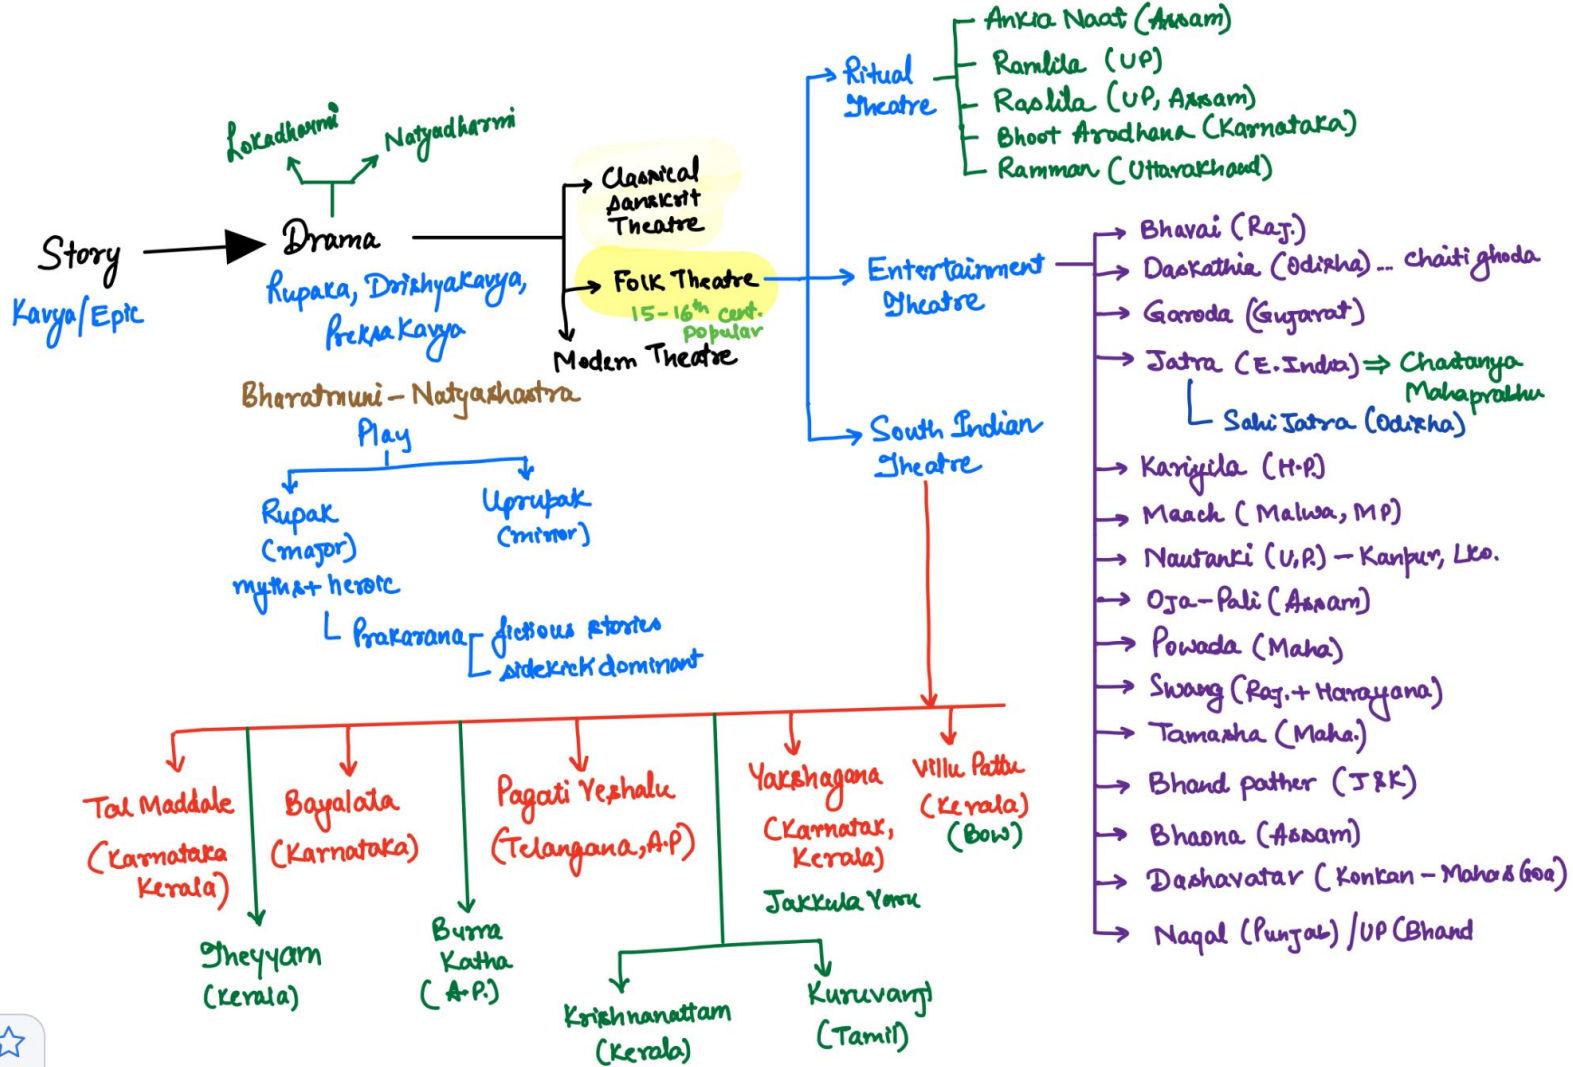 Story
Kavya/Epic
Lokadharmi
Natyadharmi
Drama
Rupaka, Drishyakavya,
Preksa Kavya
Bharatmuni - Natyashastra
Play
Rupak
(major)
myths + heroic
Uprupak
(minor)
Prakarana
fictious stories
sidekick dominant
Classical
sanskrit
Theatre
Folk Theatre
15-16th cent.
popular
Modern Theatre
Ritual
Theatre
Ankia Naat (Assam)
Ramlila (UP)
Raslila (UP, Assam)
Bhoot Aradhana (Karnataka)
Ramman (Uttarakhand)
Entertainment
Theatre
Bhavai (Raj.)
Daskathia (Odisha) ... Chaiti ghoda
Garoda (Gujarat)
Jatra (E. India) ⇒ Chaitanya
Mahaprabhu
Sahi Jatra (Odisha)
Kariyila (H.P)
Maach (Malwa, MP)
Nautanki (U.P.) - Kanpur, Lko.
Oja-Pali (Assam)
Powada (Maha)
Swang (Raj. + Harayana)
Tamasha (Maha.)
Bhand pather (J&K)
Bhaona (Assam)
Dashavatar (Konkan - Maha & Goa)
Naqal (Punjab) /UP (Bhand
South Indian
Theatre
Tal Maddale
(Karnataka
Kerala)
Theyyam
(Kerala)
Bayalata
(Karnataka)
Burra
Katha
(A.P.)
Pagati Veshalu
(Telangana, A.P)
Krishnanattam
(Kerala)
Kuruvanji
(Tamil)
Yakshagana
(Karnatak,
Kerala)
Jakkula
Villu Pattu
(Kerala)
(Bow)